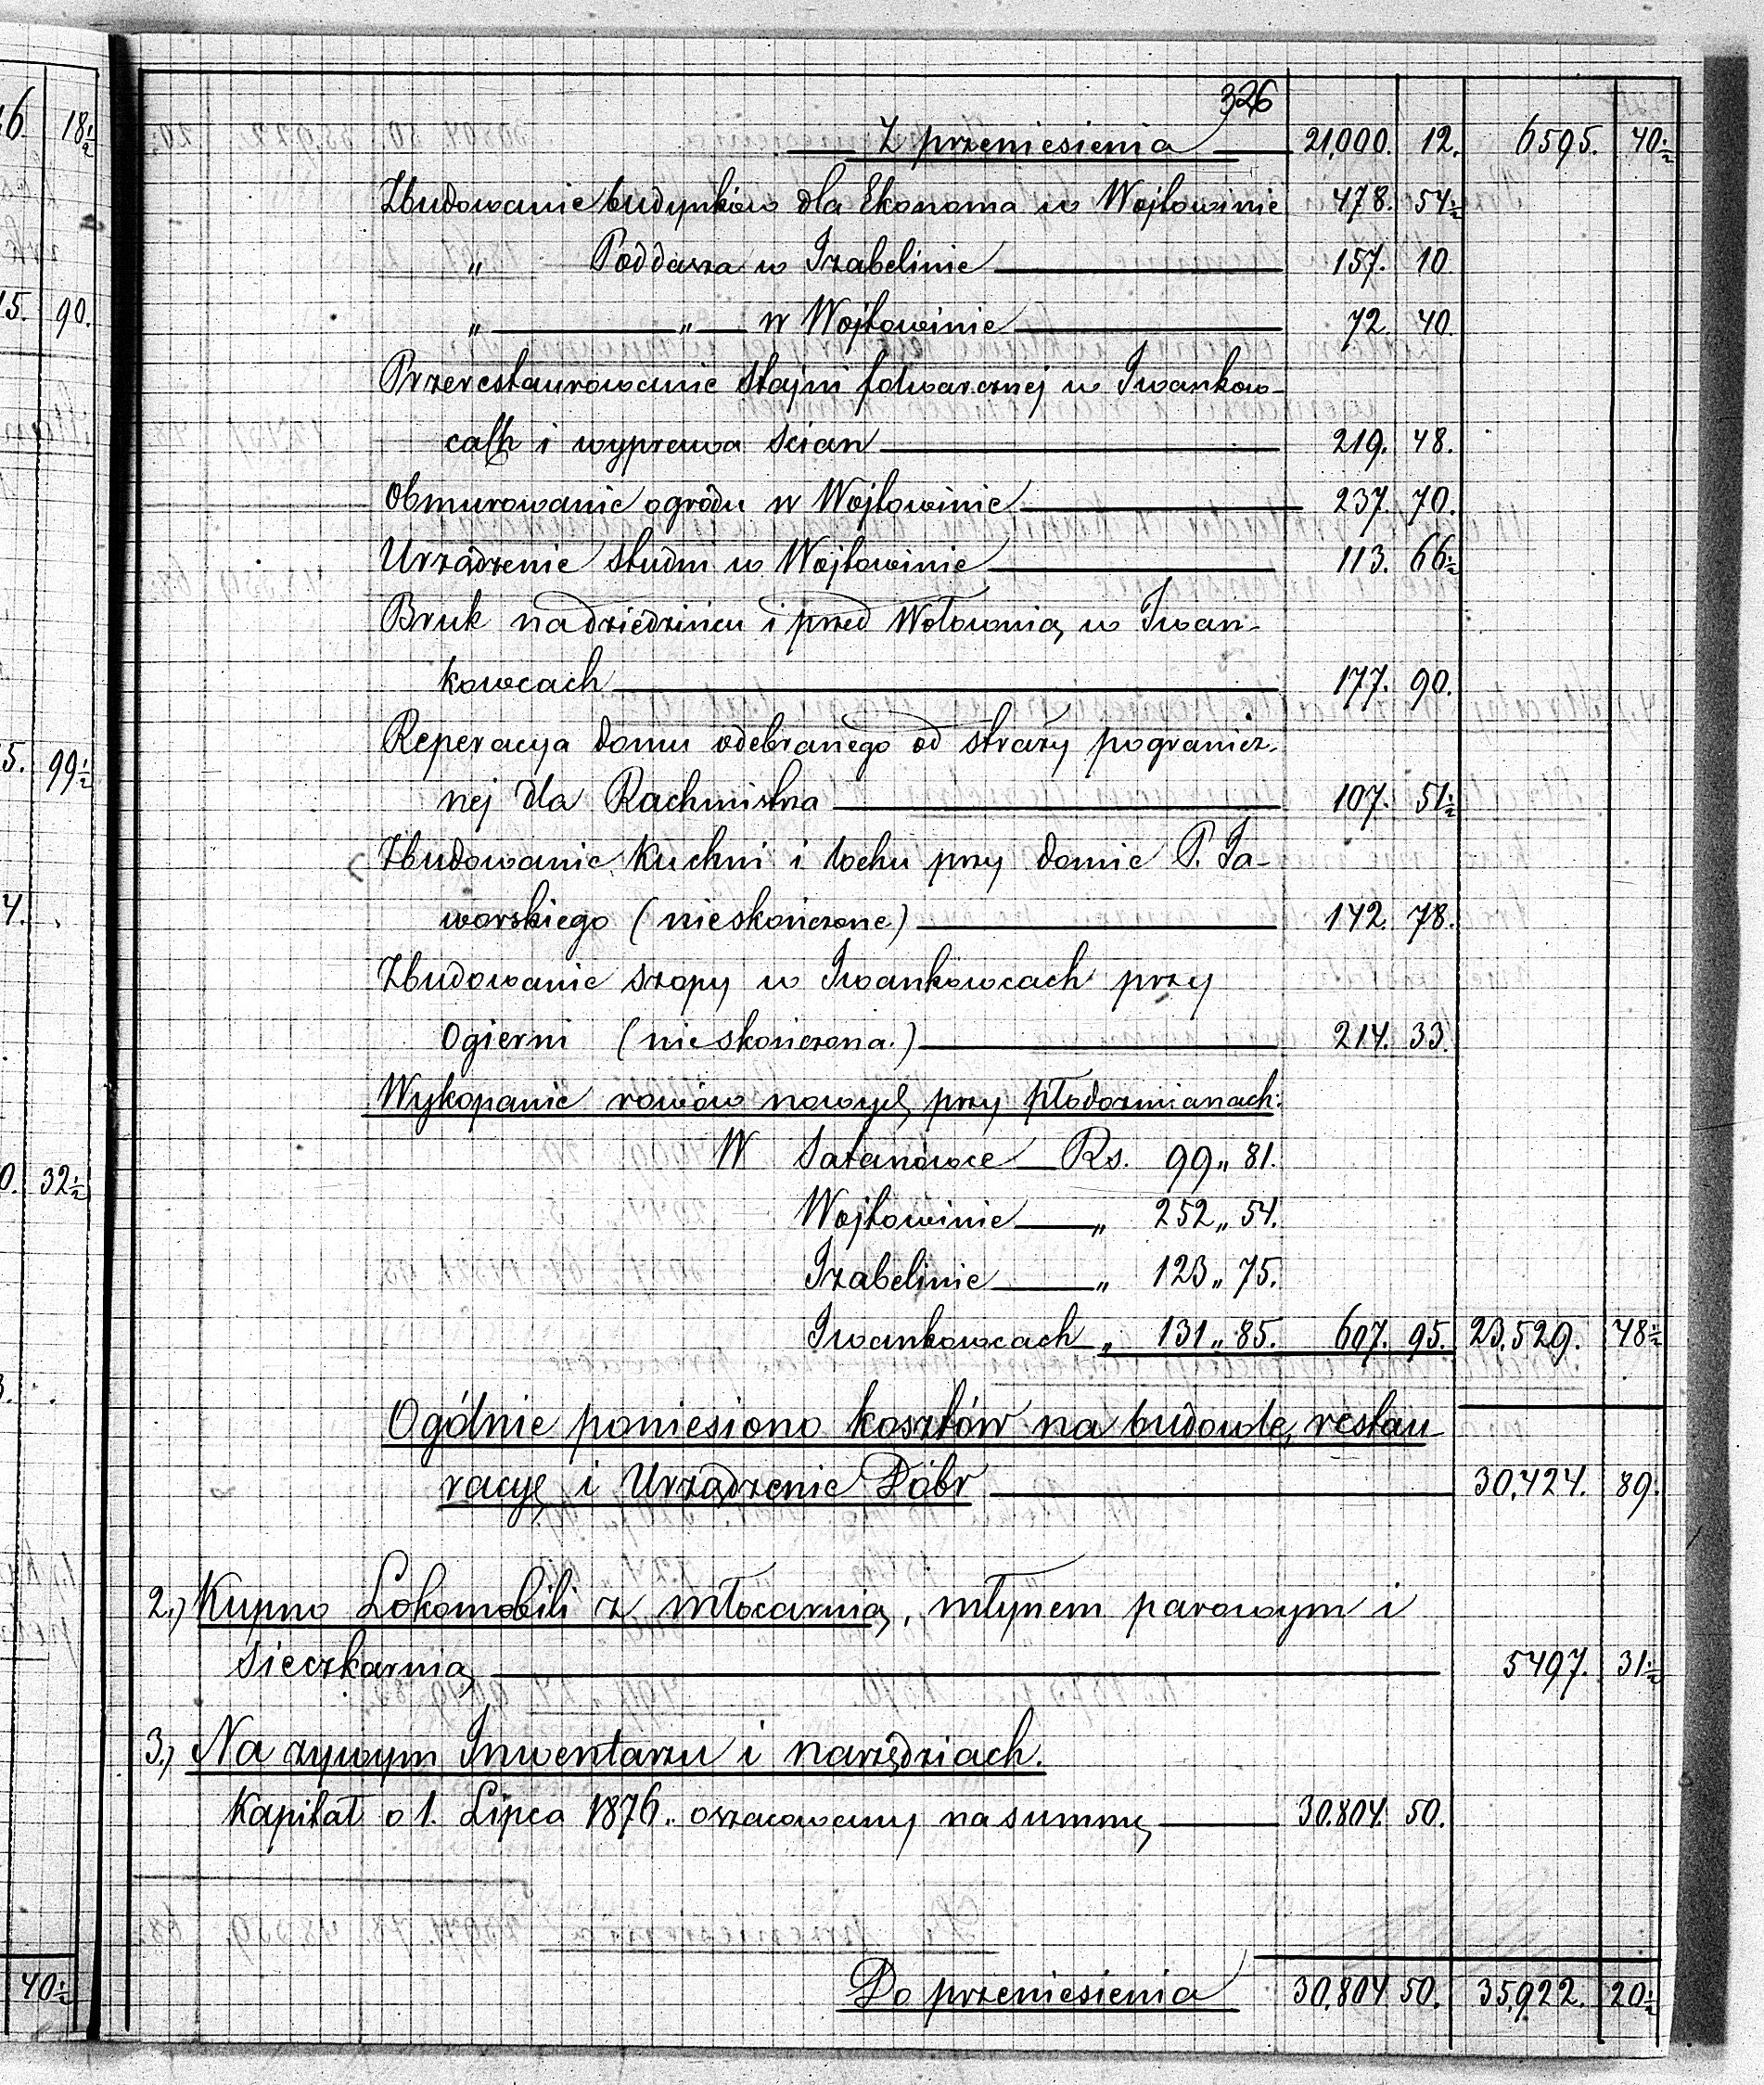 326
Z przeniesienia 21,000. 12. 6595. 40½
Zbudowanie budynków dla Ekonoma w Wojtowinie 478. 54½
" Poddasza w Izabelinie 157. 10
" " w Wojtowinie 72. 40
Przerestaurowanie stajni folwarcznej w Iwankow-
cach i wyprawa scian 219. 48.
Obmurowanie ogródu w Wojtowinie 237. 70.
Urządzenie studni w Wojtowinie 113. 66½
Bruk na dziedzińcu i przed Wołownią w Iwan-
kowcach 177. 90.
Reperacya domu odebranego od straży pogranicz-
nej dla Rachmistrza 107. 51½
Zbudowanie Kuchni i lochu przy domie P. Ja-
worskiego (nieskończone) 142. 78.
Zbudowanie szopy w Iwankowcach przy
Ogierni (nieskończona.) 214. 33.
Wykopanie rowów nowych przy płodozmianach:
W Satanówce Rs. 99 „ 81.
Wojtowinie „ 252 „ 54.
Izabelinie „ 123 „ 75.
Iwankowcach „ 131 „ 85. 607. 95. 23,529. 48½
Ogólnie poniesiono kosztów na budowlę, restau-
racyę i Urządzenie Dóbr 30,424. 89.
2.) Kupno Lokomobili z młocarnią, młynem parowym i
sieczkarnią 5497. 31½
3.) Na żywym Inwentarzu i narzędziach.
Kapitał o 1. Lipca 1876. oszacowany na summę 30.804. 50.
Do przeniesienia 30,804 50. 35,922. 20½